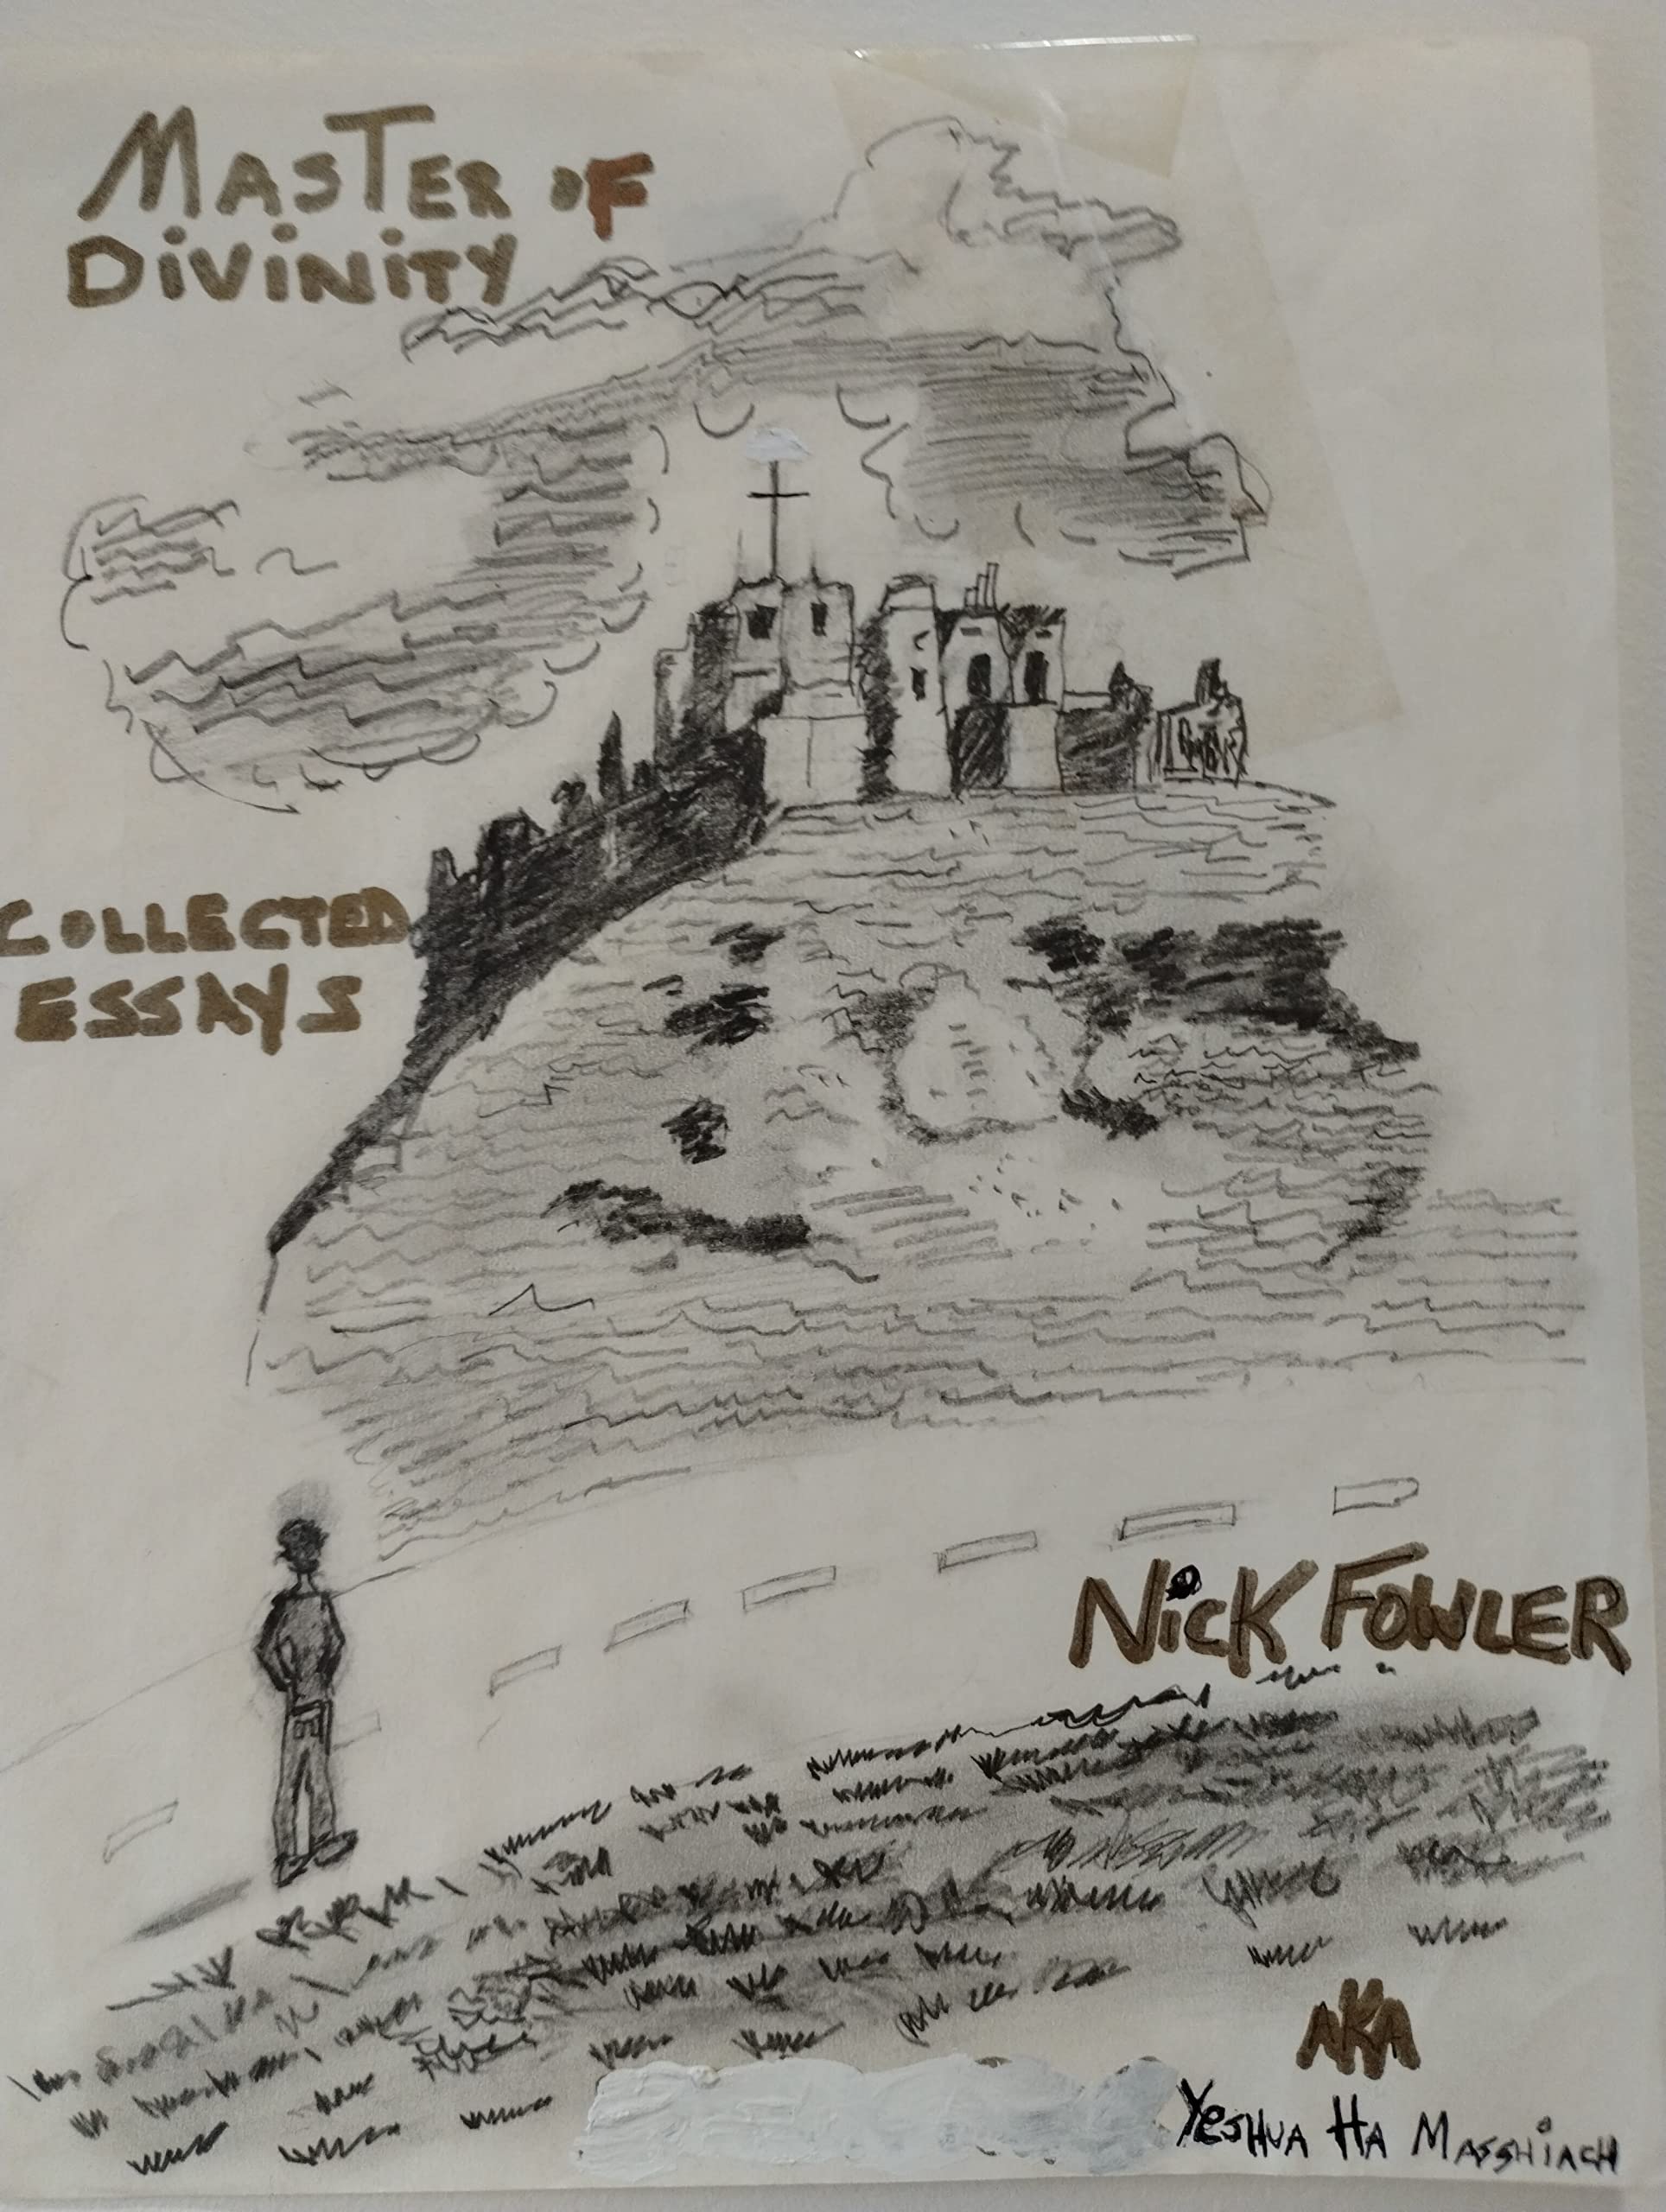 MASTER OF
DiViNiTY
COLLECTED
ESSAYS
NiCK FOWLER
AKA
YESHUA HA MASSHIACH